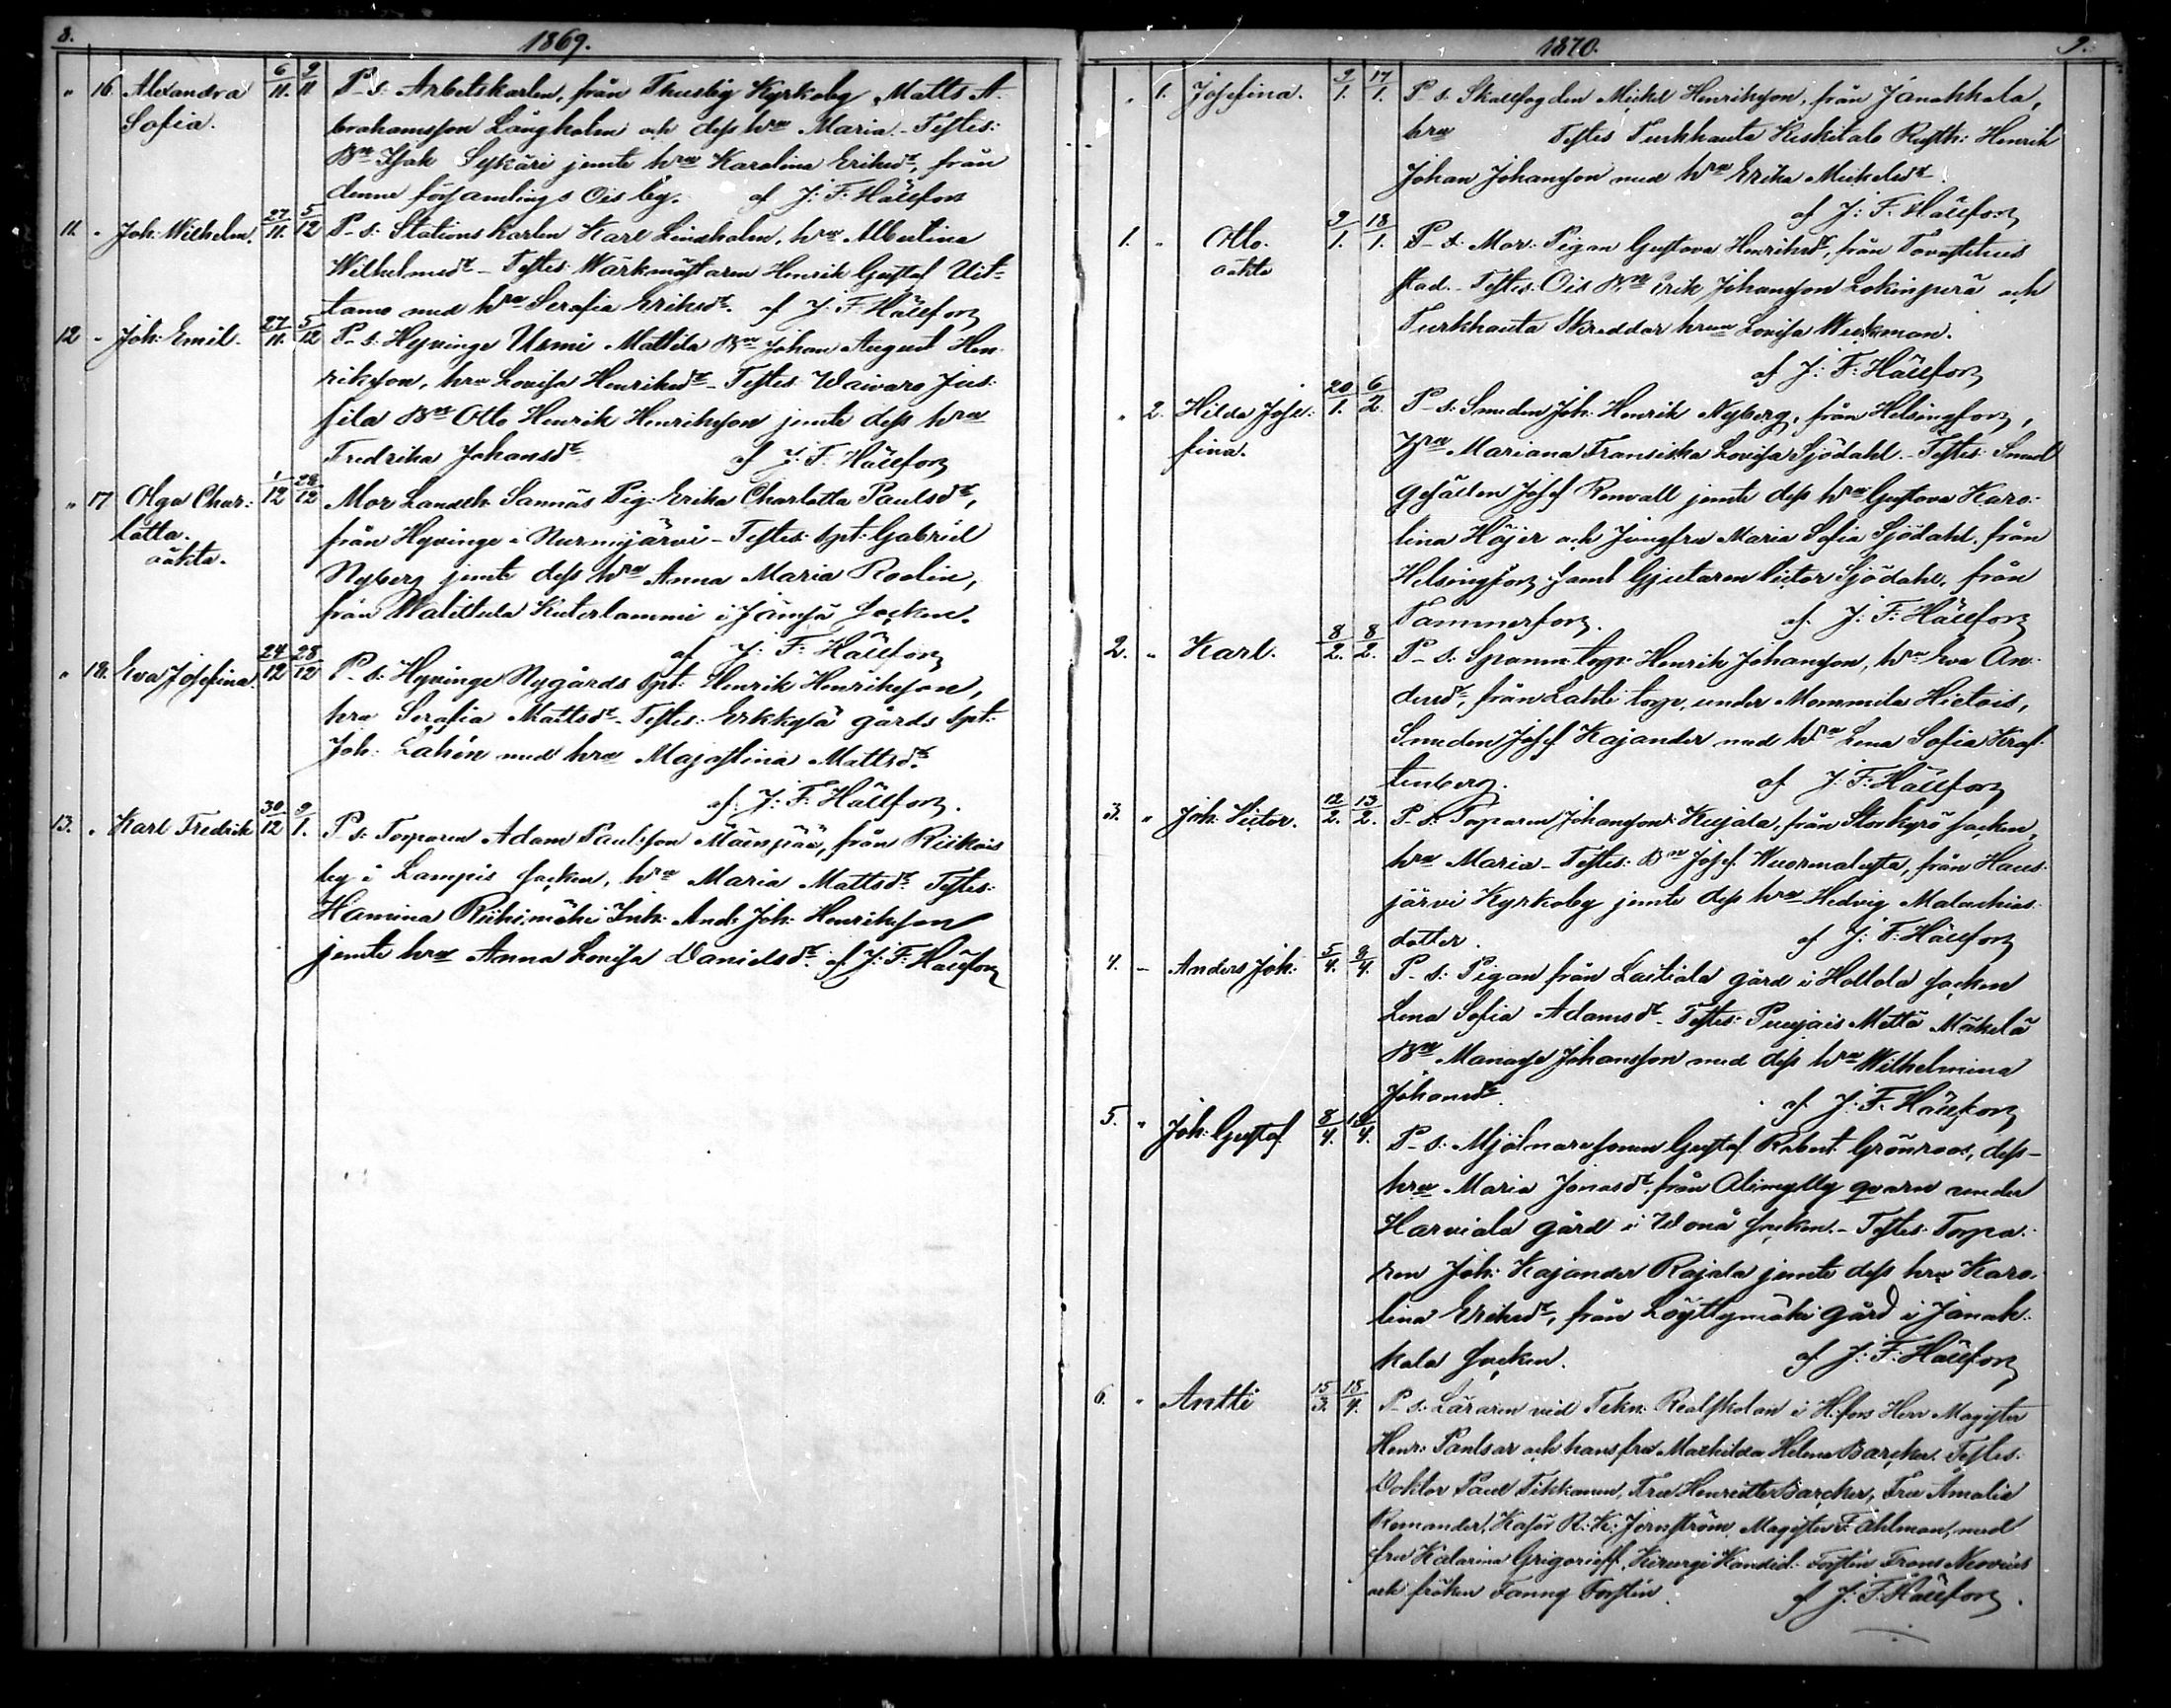 8. 1869.
" 16 Alexandra 6/11. 9/11 P-s: Arbetskarlen, från Thusby Kyrkoby Matts A-
Sofia. brahamsson Långholm och dess hru Maria. - Testes:
Bn Isak Sykäri jemte hru Karolina Eriksdr, från
denne församlings Ois by. af J: F: Hällfors
11. " Joh: Wilhelm. 27/11. 5/12 P-s: Stationskarlen Karl Lindholm, hru Albertina
Wilhelmsdr - Testes: Wärkmästaren Henrik Gustaf Uit-
tamo med hru Serafia Eriksdr. af J: F: Hällfors
12 " Joh: Emil. 27/11. 5/12 P-s: Hyvinge Usmi Mattila Bn Johan August Hen-
riksson, hru Lovisa Henriksdr - Testes: Waivaro Jus-
sila Bn Otto Henrik Henriksson jemte dess hru
Fredrika Johansdr af J: F: Hällfors
" 17 Olga Char- 1/12 28/12 Mor Landth: Sannäs Pig: Erika Charlotta Paulsdr,
lotta. från Hyvinge i Nurmijärvi - Testes: Spt: Gabriel
oäkta. Nyberg jemte dess hru Anna Maria Roslin,
från i Jämsä socken.
af J: F: Hällfors
" 18. Eva Josefina. 24/12 28/12 P-s: Hyvinge Nygårds Spt: Henrik Henriksson,
hru Serafia Mattsdr - Testes: Erkkylä gårds Spt:
Joh: Lahén med hru Maja Stina Mattsdr.
af: J: F: Hällfors.
13. " Karl Fredrik 30/12 9/1. P-s: Torparen Adam Paulsson Mäenpää, från Riikois
by i Lampis socken, hru Maria Mattsdr. Testes:
Hamina Riihimäki Inh: And: Joh: Henriksson
jemte hru Anna Lovisa Danielsdr. af J: F: Hällfors
1870. 9.
" 1. Josefina. 9/1. 17/1. P-s: Skallfogden Mickel Henriksson, från Janakkala,
hru Testes Turkhauta Kiskitalo Rusth: Henrik
Johan Johansson med hru Erika Mickelsdr.
af J: F: Hällfors
1. " Otto. 9/1. 18/1. P-s: Mor. Pigan Gustava Henriksdr, från Tavastehus
oäkta stad. - Testes: Ois Bn Erik Johansson Lokinperä och
Turkhauta Skreddar hrun Lovisa Weckman.
af J: F: Hällfors
" 2. Hilda Jose- 20/1. 6/2. P-s: Smeden Joh: Henrik Nyberg, från Helsingfors,
fina. hru Mariana Fransiska Lovisa Sjödahl. - Testes: Smed
gesällen Josef Renvall jemte dess hru Gustava Karo-
lina Höjer och Jungfru Maria Sofia Sjödahl, från
Helsingfors samt Gjutaren Victor Sjödahl, från
Tammerfors. af J: F: Hällfors
2. " Karl. 8/2. 8/2. P-s: Spannm: torp: Henrik Johansson, hru Eva An-
dersdr, från Lahti torp, under Mommila Hietois,
Smeden Josef Kajander med hru Lena Sofia Kraf-
tenberg. af J: F: Hällfors
3. " Joh: Victor. 12/2. 13/2. P-s: Torparen Johansson Kujala, från Storkyrö socken,
hru Maria - Testes: Bn Josef Wuorenalusta, från Haus-
järvi Kyrkoby jemte dess hru Hedvig Malachias-
dotter. af J: F: Hällfors
4. - Anders Joh: 5/4. 9/4. P-s: Pigan från Laitiala gård i Hollola socken
Lena Sofia Adamsdr - Testes: Puujais Mattä Mäkelä
Bn Manasse Johansson med dess hru Wilhelmina
Johansdr. af J: F: Hällfors
5. " Joh: Gustaf 8/4. 10/4. P-s: Mjölnaresonen Gustaf Robert Grönroos, dess-
hru Maria Jonasdr, från Alimylly qvarn under
Harviala gård i Wonå socken. - Testes: Torpa-
ren Joh: Kajander Rajala jemte dess hru Karo-
lina Eriksdr, från Löyttymäki gård i Janak-
kala socken. af J: F: Hällfors
6. " Antti 15/3. 18/4. P-s: Läraren vid Tekn: Realskolan i H:fors Herr Magister
Henr: Paulsar och hans fru Mathilda Helena Barcker. Testes:
Doktor Paul Tikkanen, Fru Henriette Barcker, Fru Amalie
Romander, Kasör R: K: Jernström, Magister F. Ahlman, med
fru Katarina Grigorieff, Kirurgi Kandid: Forstén Frans Neovius
och fröken Fanny Forstén. af J: F: Hällfors.